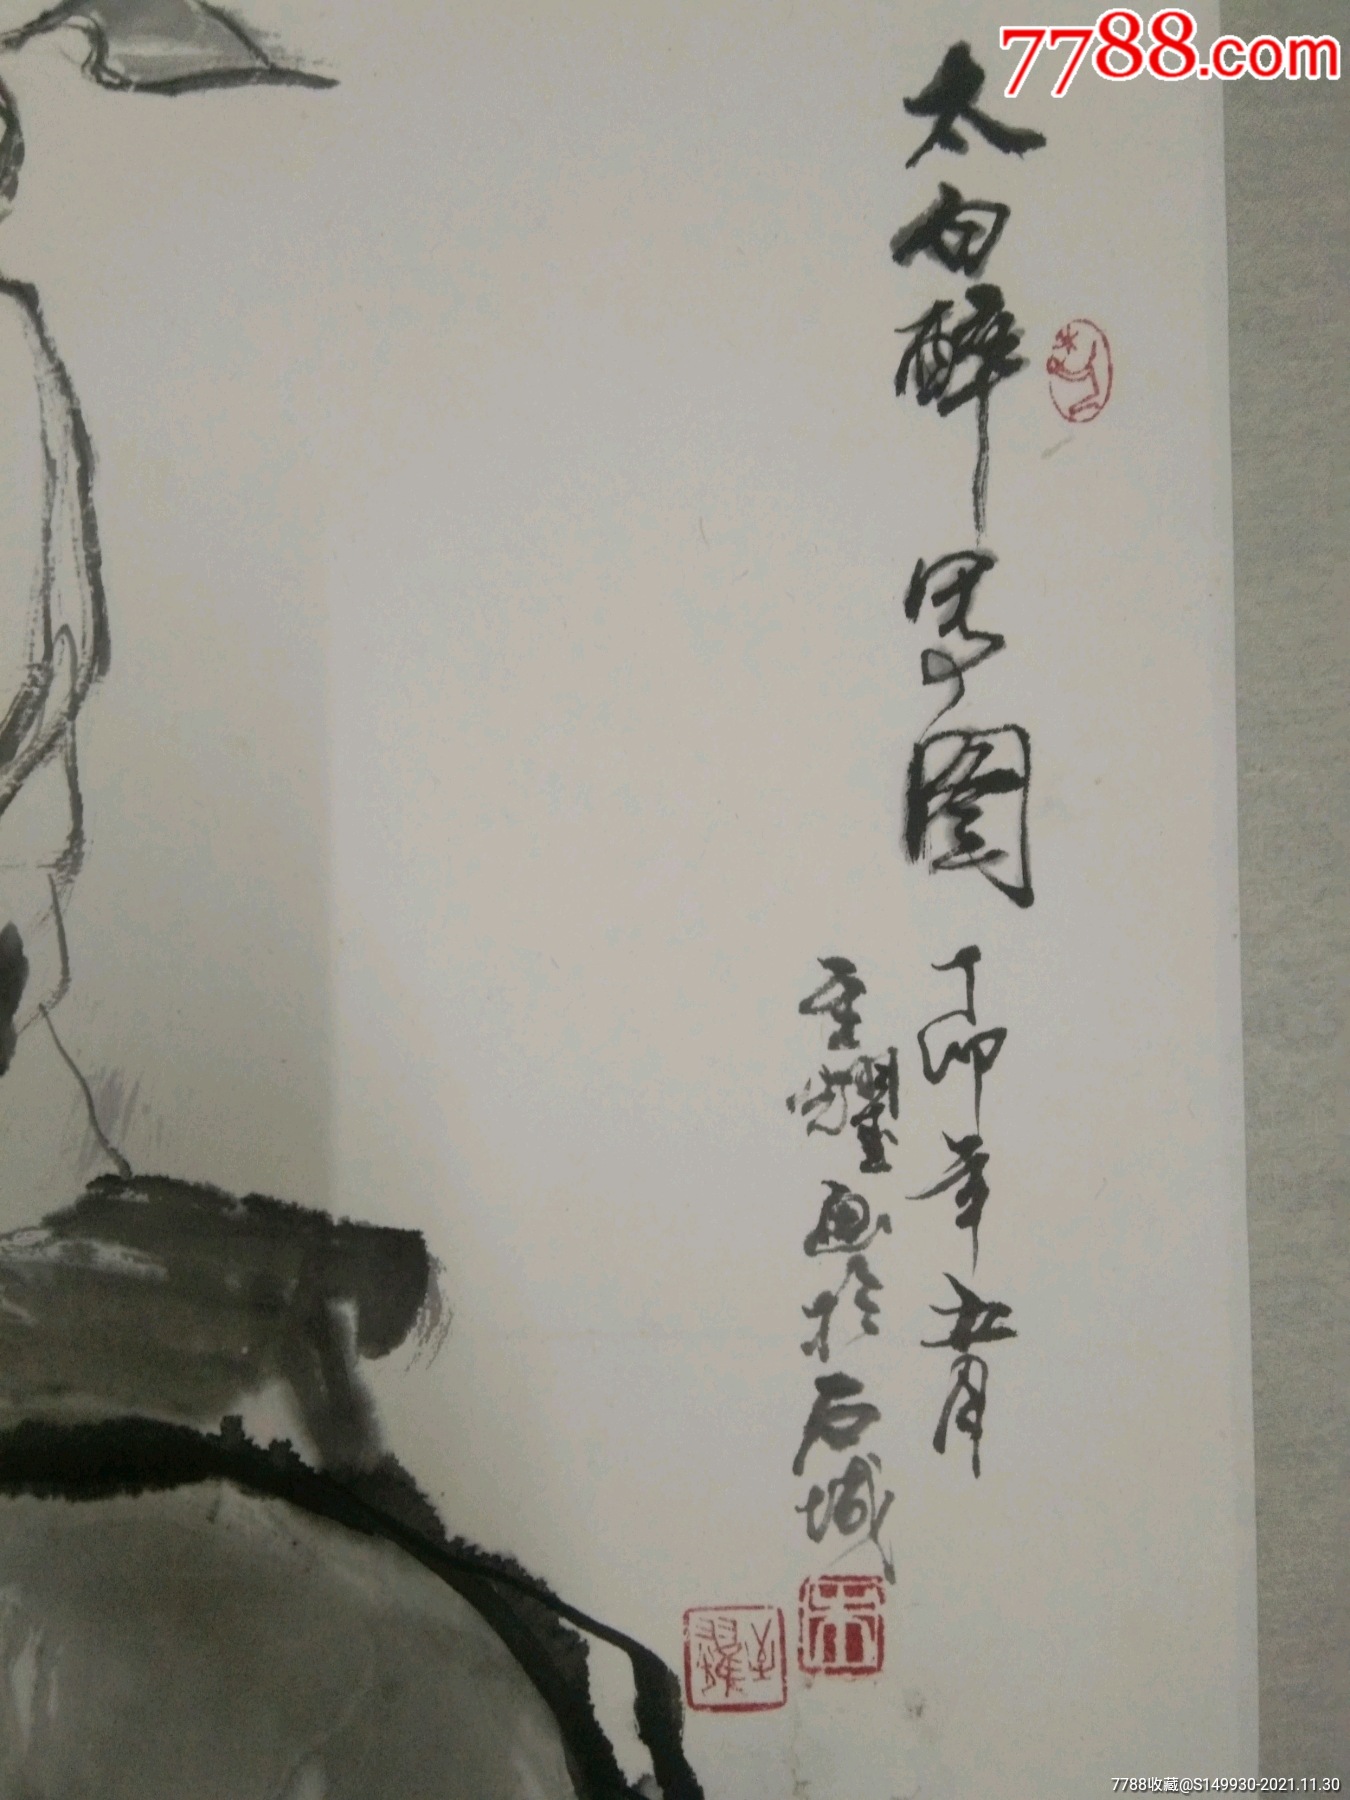 7788.com
太白醉写图
丁卯年五月
至耀画於石城
至耀
7788收藏@S149930-2021.11.30